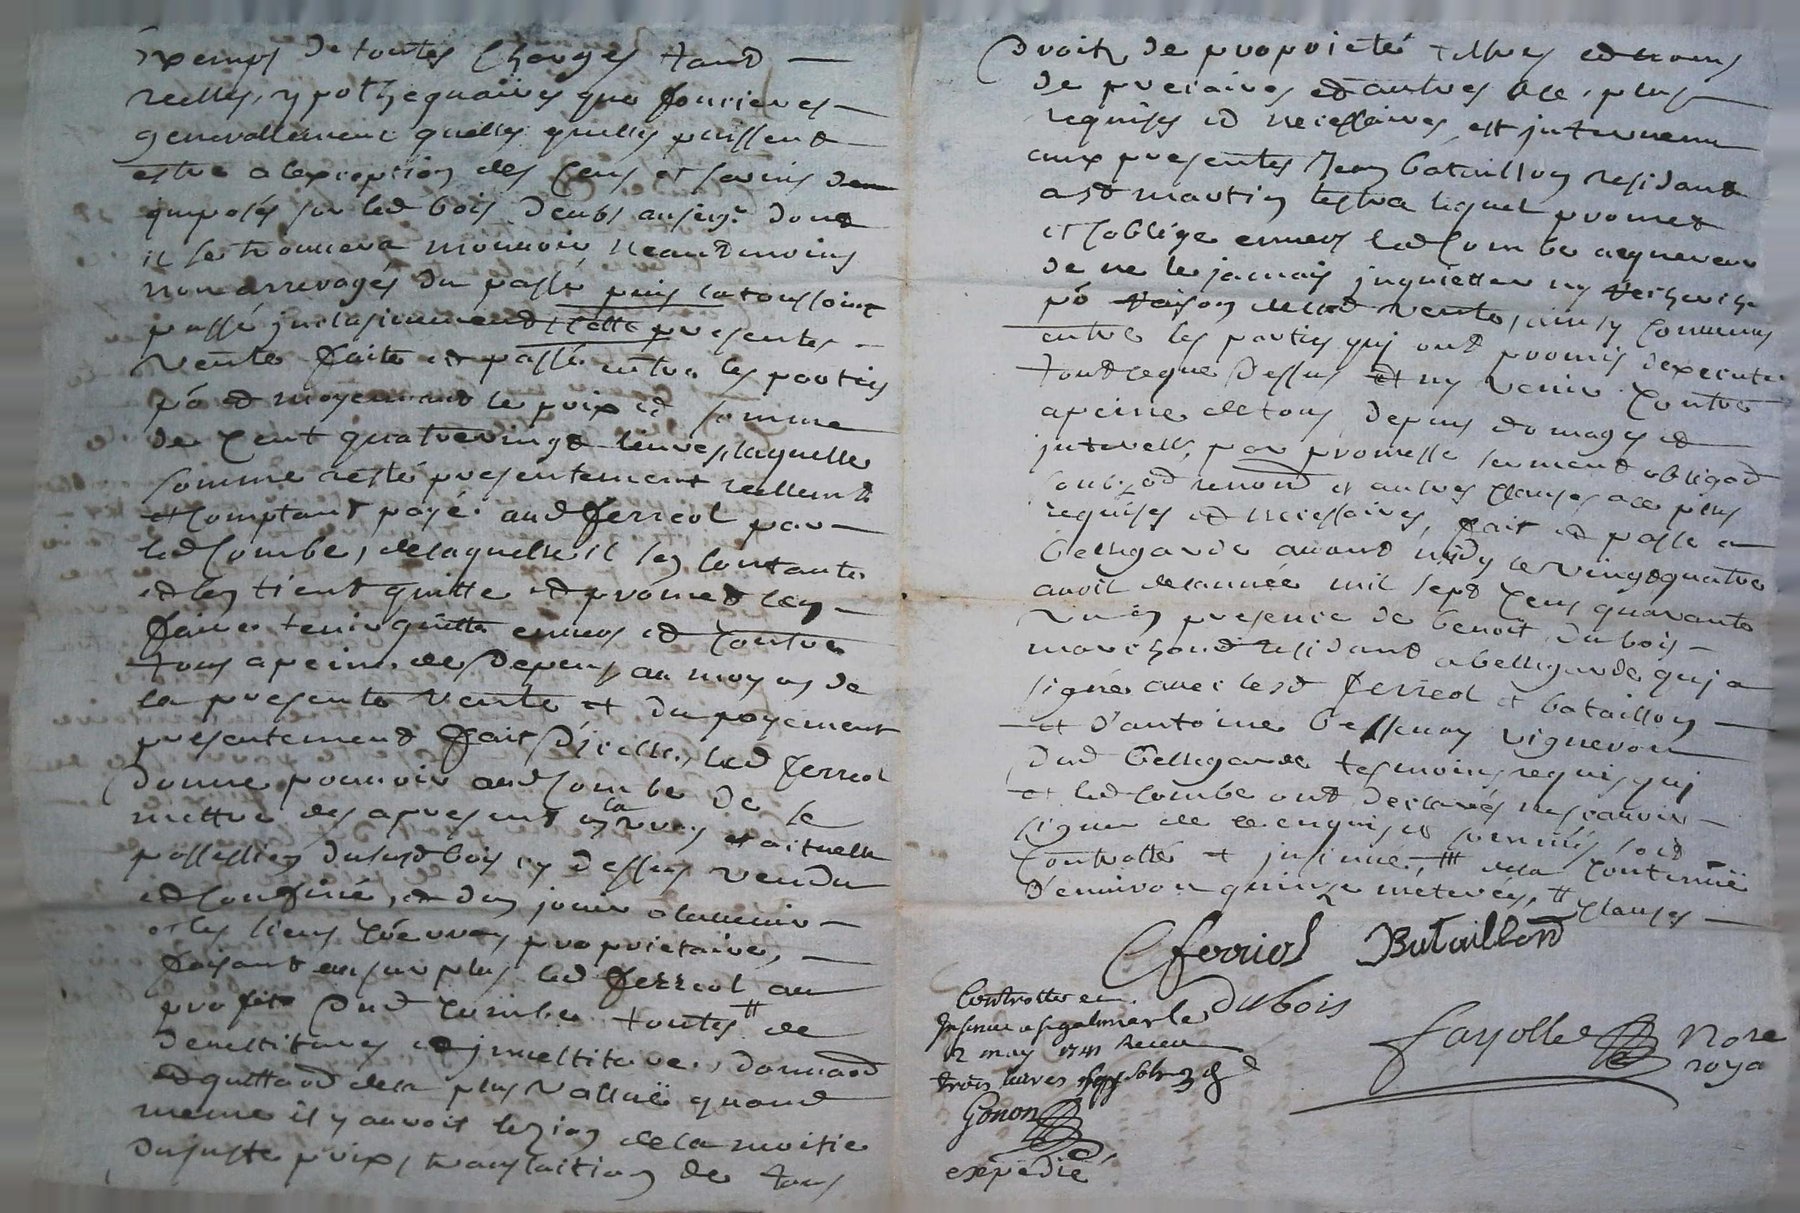 Exemps de toutes Charges tand
reelles, ypothequaires que foncieres
generallement quelles quelles puissent
estre a lexception des Cens et servis
imposés sur led bois deubs au seigr dont
il se trouvera mouvoir, neandmoins
non arreragés du passé puis la toussoint
passé jnclusivement, cette presente
vente faite et passé entre les parties
po et moyennant le prix et somme
de Cent quatrevingt livres, laquelle
somme a esté presentement reellemt
et Comptant payé aud ferreol par
led Combe, delaquelle il sen Contante
et len tient quitte et promet len
faire tenir quitte envers et Contre
tous a peine de depens, au moyen de
la presente vente et du payement
presentement fait d'icelle, led ferreol
donne pouvoir aud Combe de se
mettre des apresent en la vraÿe et actuelle
possession dususd bois cy dessus vendu
et Confiné, et den jouir a lavenir
et les siens Coe vray proprietaire,
faisant au surplus led ferreol au
profit dud Combe toutes #
devestitures et jnvestitures, donnand
et quittand dela plus vallue quand
meme il y auroit lezion dela moitie
du juste prix, translation de tous
Droits de proprieté tiltres et noms
de precaires et autres a ce plus
requises et necessaires, est jntervenu
aux presentes Jean bataillon residant
a st martin lestra lequel promet
et soblige envers led Combe acquereur
de ne le jamais jnquietter ny recherche
po raison de lad vente, ainsy Convenus
entre les parties qui ont promis dexecuter
tout ceque dessus et ny venir Contre
a peine de tous depens domages et
jnterests, par promesse serment obligaon
soubzon renonon et autres Clauses a ce plus
requises et necessaires, fait et passé a
bellegarde avant midy le vingtquatre
avril de lannée mil sept Cens quarante
un en presence de benoit dubois
marchand residant a bellegarde qui a
signé avec lesd ferreol et bataillon
et d'antoine bessenay vigneron
dud bellegarde tesmoins requis qui
et led Combe ont declarés ne scavoir
signer de ce enquis et sommés soit
Controllé et jnsinué, # de la Contenue
d'environ quinze meterées, # Clauses
ferriol Bataillond
Dubois
fayolle Nore
roya
Controllé et
Jnsinué a st galmier le
12 may 1741 Receu
trois livres sols
Gonon
expedié